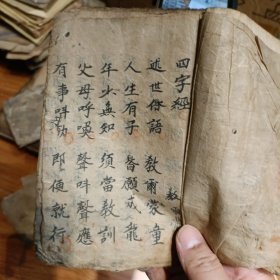 四字經
述世俗語 教爾蒙童
人生有子 皆願成龍
年少無知 須當教訓
父母呼喚 聲叫聲應
有事呼功 即便就行